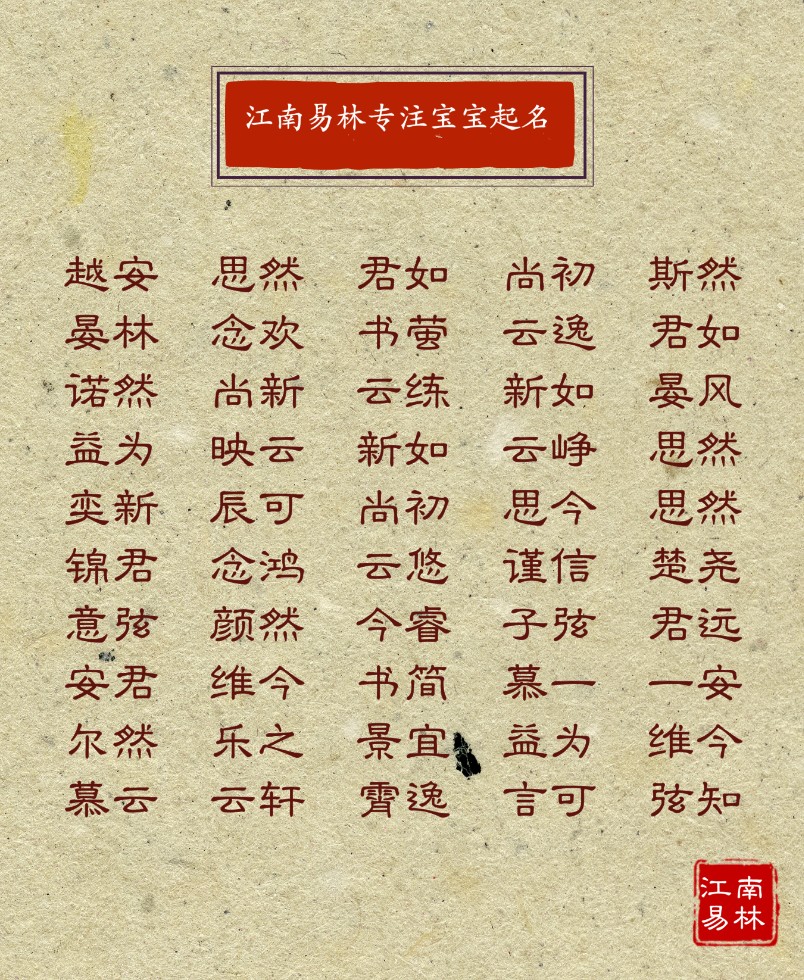 江南易林专注宝宝起名
越安 思然 君如 尚初 斯然
晏林 念欢 书萤 云逸 君如
诺然 尚新 云练 新如 晏风
益为 映云 新如 云峥 思然
奕新 辰可 尚初 思今 思然
锦君 念鸿 云悠 谨信 楚尧
意弦 颜然 今睿 子弦 君远
安君 维今 书简 慕一 一安
尔然 乐之 景宜 益为 维今
慕云 云轩 霄逸 言可 弦知
江南
易林